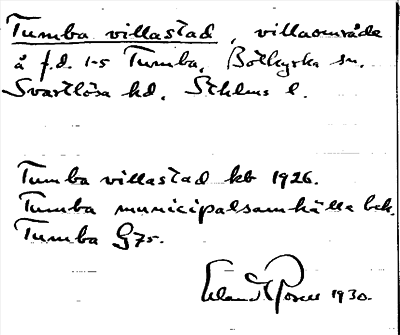 Tumba villastad, villaområde
å f.d. 1-5 Tumba, Botkyrka sn.
Svartlösa hd, Sthlms l.
Tumba villastad kb 1926.
Tumba municipalsamhälle bek.
Tumba G75.
Erland Rosell 1930.